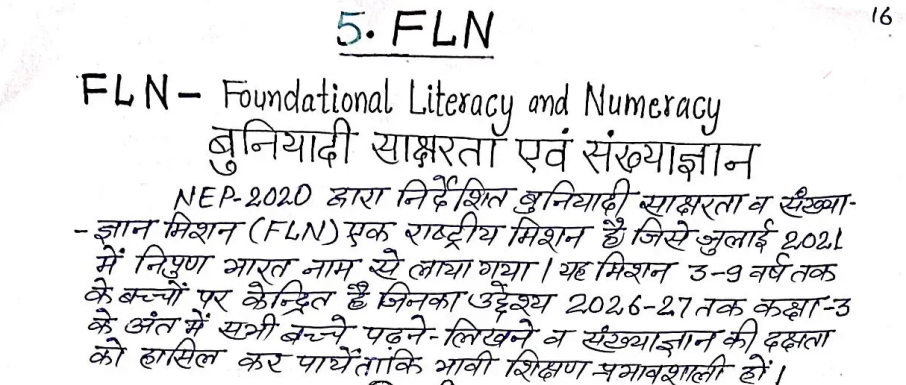 16
5. FLN
FLN- Foundational Literacy and Numeracy
बुनियादी साक्षरता एवं संख्याज्ञान
NEP-2020 द्वारा निर्देशित बुनियादी साक्षरता व संख्या-
-ज्ञान मिशन (FLN) एक राष्ट्रीय मिशन है जिसे जुलाई 2021
में निपुण भारत नाम से लाया गया। यह मिशन 3-9 वर्ष तक
के बच्चों पर केन्द्रित है जिनका उद्देश्य 2026-27 तक कक्षा-3
के अंत में सभी बच्चे पढ़ने-लिखने व संख्याज्ञान की दक्षता
को हासिल कर पायें ताकि भावी शिक्षण प्रभावशाली हों।